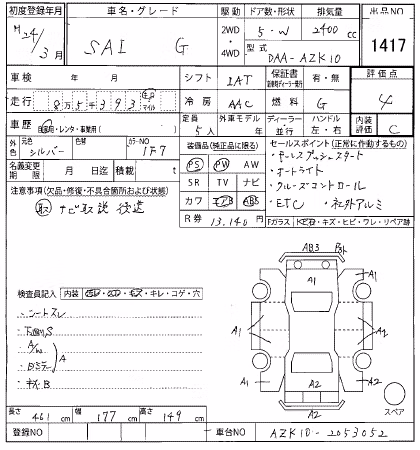 初度登録年月
車名・グレード
駆動
ドア数・形状
排気量
出品NO
H24/3月
SAI G
2WD
・
4WD
5・W
2400 cc
型式
DAA-AZK10
1417
車検 年 月
シフト
IAT
保証書
有・無
評価点
走行
8万5千393
マイル
冷房
AAC
燃料
G
4
車歴
自家用・レンタ・事業用
定員
5人
外車モデル
年
ディーラー
並行
ハンドル
左・右
内装評価
C
外色
元色
シルバー
色替
カラーNO
1F7
装備品(純正品に限る)
セールスポイント(正常に作動するもの)
名義変更期限
月 日迄
積載
t
PS PW AW
SR TV ナビ
カワ エアB ABS
キーレスプッシュスタート
オートライト
クルーズコントロール
ETC
社外アルミ
注意事項(欠品・修復・不具合箇所および状態)
取 ナビ取説 後送
R券
13,140円
Fガラス
トビ石・キズ・ヒビ・ワレ・リペア跡
検査員記入
内装
シートスレ
下廻りS
キズB
AB3
A1
A1
A1
A1
A1
A2
A2
A2
スペア
長さ 461 cm
幅 177 cm
高さ 149 cm
登録NO
車台NO
AZK10-2053052